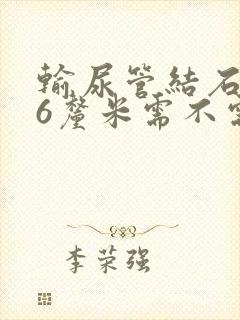 輸尿管結石
6釐米需不需
李荣强